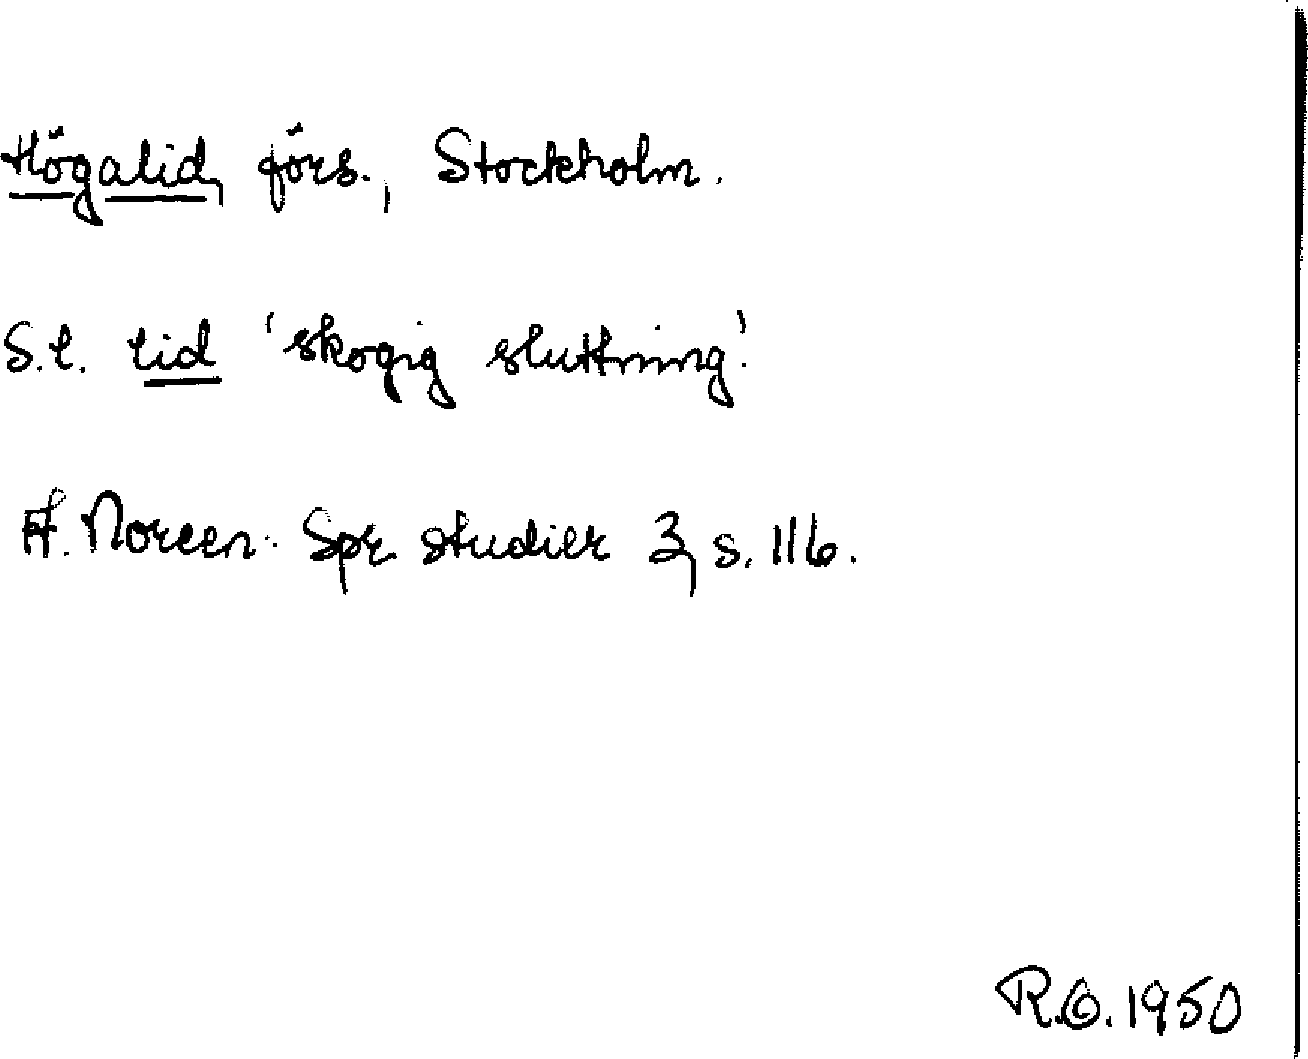 Högalid, förs., Stockholm.
S.l. lid 'skogig sluttning'.
A. Noreen: Spr. studier 3, s. 116.
R.O. 1950